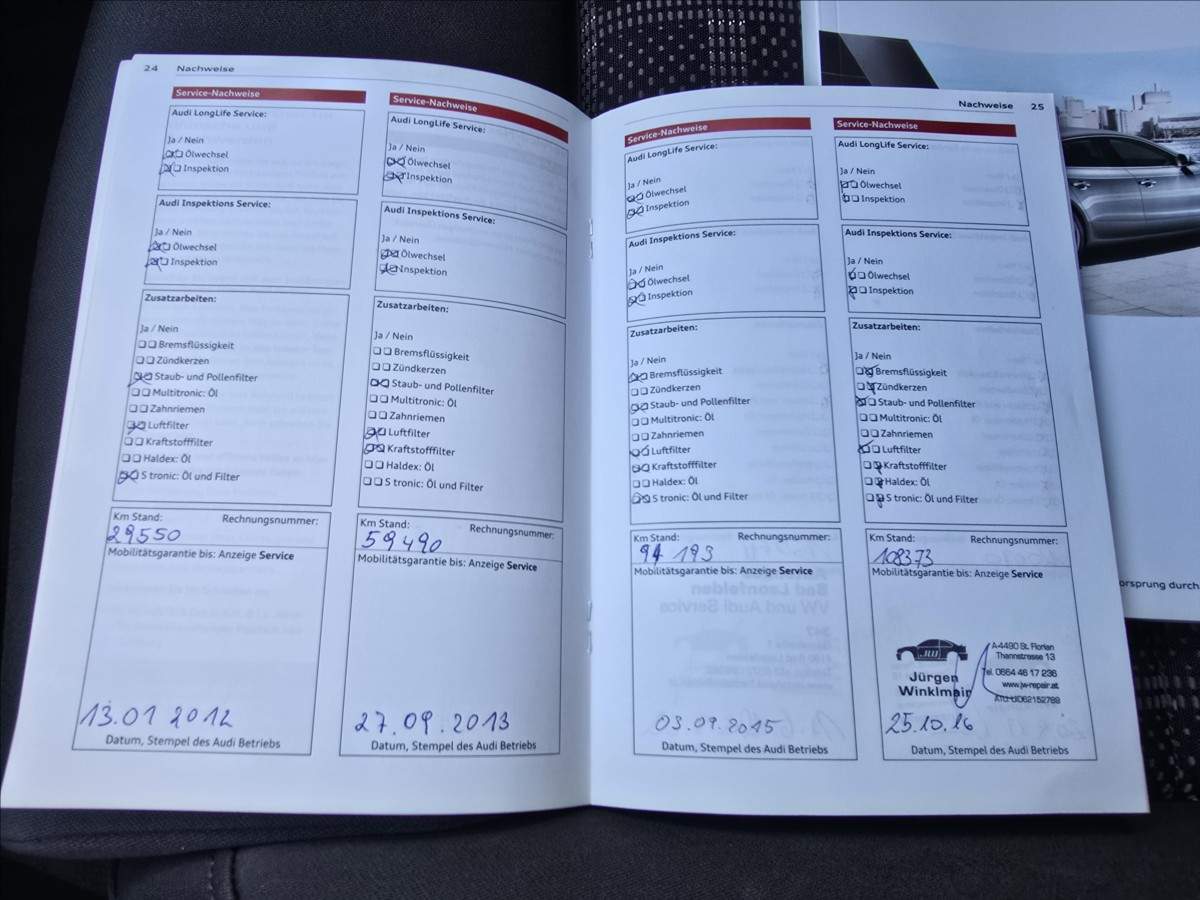 24 Nachweise
Service-Nachweise
Audi LongLife Service:
Ja / Nein
Ölwechsel
Inspektion
Audi Inspektions Service:
Ja / Nein
Ölwechsel
Inspektion
Zusatzarbeiten:
Ja / Nein
Bremsflüssigkeit
Zündkerzen
Staub- und Pollenfilter
Multitronic: Öl
Zahnriemen
Luftfilter
Kraftstofffilter
Haldex: Öl
S tronic: Öl und Filter
Km Stand: Rechnungsnummer:
29550
Mobilitätsgarantie bis: Anzeige Service
13.01 2012
Datum, Stempel des Audi Betriebs
Service-Nachweise
Audi LongLife Service:
Ja / Nein
Ölwechsel
Inspektion
Audi Inspektions Service:
Ja / Nein
Ölwechsel
Inspektion
Zusatzarbeiten:
Ja / Nein
Bremsflüssigkeit
Zündkerzen
Staub- und Pollenfilter
Multitronic: Öl
Zahnriemen
Luftfilter
Kraftstofffilter
Haldex: Öl
S tronic: Öl und Filter
Km Stand: Rechnungsnummer:
59490
Mobilitätsgarantie bis: Anzeige Service
27.09.2013
Datum, Stempel des Audi Betriebs
Nachweise 25
Service-Nachweise
Audi LongLife Service:
Ja / Nein
Ölwechsel
Inspektion
Audi Inspektions Service:
Ja / Nein
Ölwechsel
Inspektion
Zusatzarbeiten:
Ja / Nein
Bremsflüssigkeit
Zündkerzen
Staub- und Pollenfilter
Multitronic: Öl
Zahnriemen
Luftfilter
Kraftstofffilter
Haldex: Öl
S tronic: Öl und Filter
Km Stand: Rechnungsnummer:
94 193
Mobilitätsgarantie bis: Anzeige Service
03.09.2015
Datum, Stempel des Audi Betriebs
Service-Nachweise
Audi LongLife Service:
Ja / Nein
Ölwechsel
Inspektion
Audi Inspektions Service:
Ja / Nein
Ölwechsel
Inspektion
Zusatzarbeiten:
Ja / Nein
Bremsflüssigkeit
Zündkerzen
Staub- und Pollenfilter
Multitronic: Öl
Zahnriemen
Luftfilter
Kraftstofffilter
Haldex: Öl
S tronic: Öl und Filter
Km Stand: Rechnungsnummer:
108373
Mobilitätsgarantie bis: Anzeige Service
JW
Jürgen
Winklmair
A-4490 St. Florian
Thannstrasse 13
Tel. 0664 46 17 236
www.jw-repair.at
25.10.16
Datum, Stempel des Audi Betriebs
orsprung durch